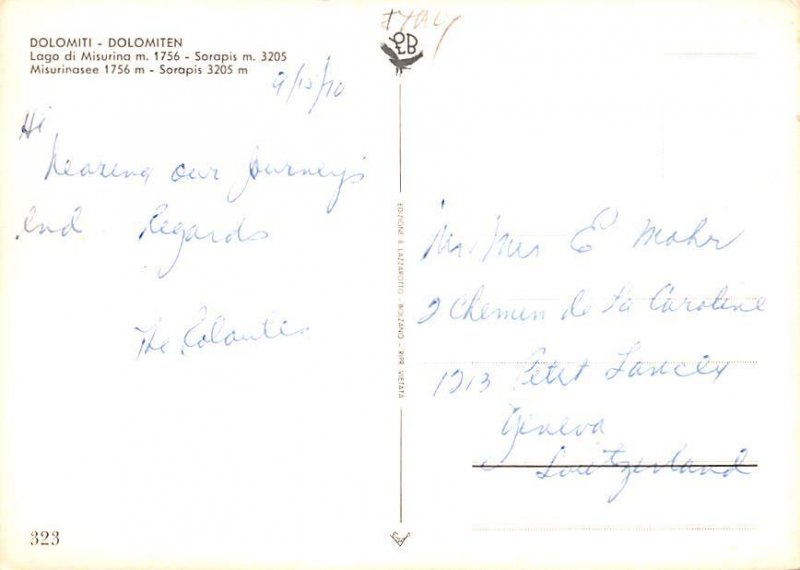 ITALY
DOLOMITI - DOLOMITEN
Lago di Misurina m. 1756 - Sorapis m. 3205
Misurinasee 1756 m - Sorapis 3205 m
9/15/70
Hi
Nearing our Journey's
End. Regards
The
EDIZIONE B. LAZZAROTTO - BOLZANO - RIPR. VIETATA
Mr. Mrs E Mohr
2 Chemin de La Caroline
1213 Petit Lancex
Geneva
Switzerland
323